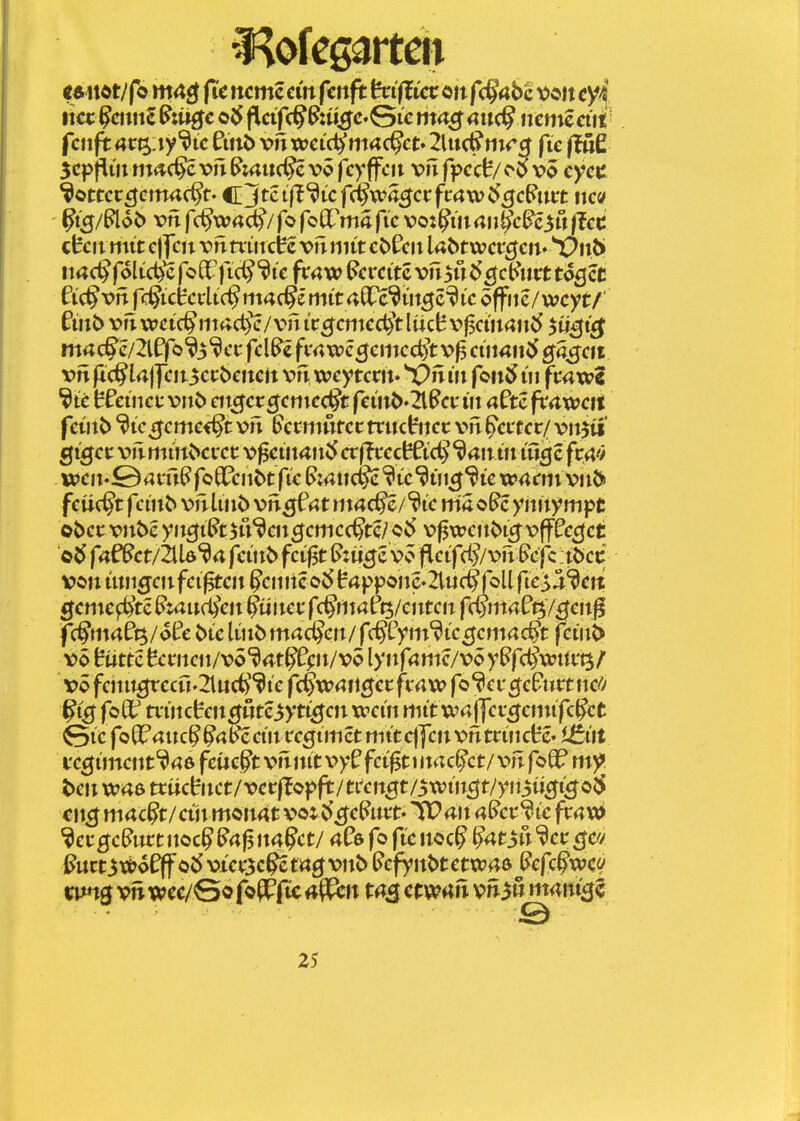 Rosegarten
es not/so mag sie neme ein senft kristier on schabē von ey⸗
ner hēnnē brüge oď fleischbrüge. Sie mag auch nemē ein
senft artz.ny die lind vn̄ weich machet. Auch mag sie slüß
zepflin machē vn̄ brauchē vō seyffen vn̄ speck/ oď vō eyer
dottergemacht. ¶ Itē ist die schwäger fraw ď geburt ne⸗
hig/blöd vn̄ schwach/so soll mā sie vorhin anhebē zů ster
cken mit essen vn̄ trinckē vn̄ mit edlen ladtwergen. Vnd
nach sölichē soll sich die fraw bereitē vn̄ zů ď geburt töget
lich vn̄ schickerlich machē mit allē dingē die öffnē/weyt/
lind vn̄ weich machē/vn̄ irgemecht lück vß einanď zügig
machē/Also dz der selbē frawē gemecht vß einanď gāgen
vn̄ sich lassen zerdenen vn̄ weytern. Vn̄ in sonď in frawē
die kleiner vnd engergemecht seind. Aber in altē frawen
seind die gemecht vn̄ bermůter truckner vn̄ herter/ vn̄ zů
giger vn̄ minderer vßeinanď erstrecklich dan in iūgē fra⸗
wen. Darūb sollendt sie brauchē die ding die warm vnd
feücht seind vn̄ lind vn̄ glat machē/die mā obē ynnympt
oder vndē yngibt zů den gemechtē/ oď vßwendig vffleget
oď salbet/Als da seind feißt brügē vō fleisch/vn̄ besc:der
von iungen feißten hennē oď kapponē. Auch soll sie zů den
gemechtē brauchen hüner schmaltz/enten schmaltz/genß
schmaltz/ōle die lind machen/schlym die gemacht seind
vō bütte kernen/vō dathlen/vō lynsamē/vō ybschwurtz/
vō fenugrecū. Auch die schwanger fraw so der geburt ne⸗
hig soll trincken gůtē zytigen wein mit wassergemischet
Sie soll auch habē ein regimēt mit essen vn̄ trinckē. Ein
regiment das feücht vn̄ nit vyl feißt machet/vn̄ soll my
den was trücknet/verstopft/trengt/zwingt/ynzügig oď
eng macht/ein monat vor ď geburt. Wan aber die fraw
der geburt noch baß nahet/ als so sie noch hat zů der ge⸗
burt zwölff oď vierzehē tag vnd befyndt etwas beschwe⸗
rung vn̄ wee/So soll sie allen tag etwan vn̄ zů manigē
S
25